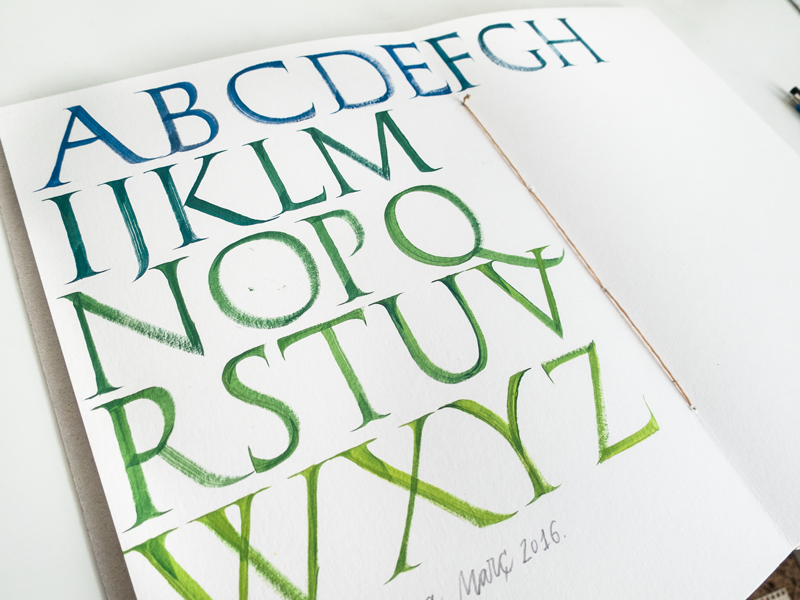 ABCDEFGH
IJKLM
NOPQ
RSTUV
WXYZ
Març 2016.